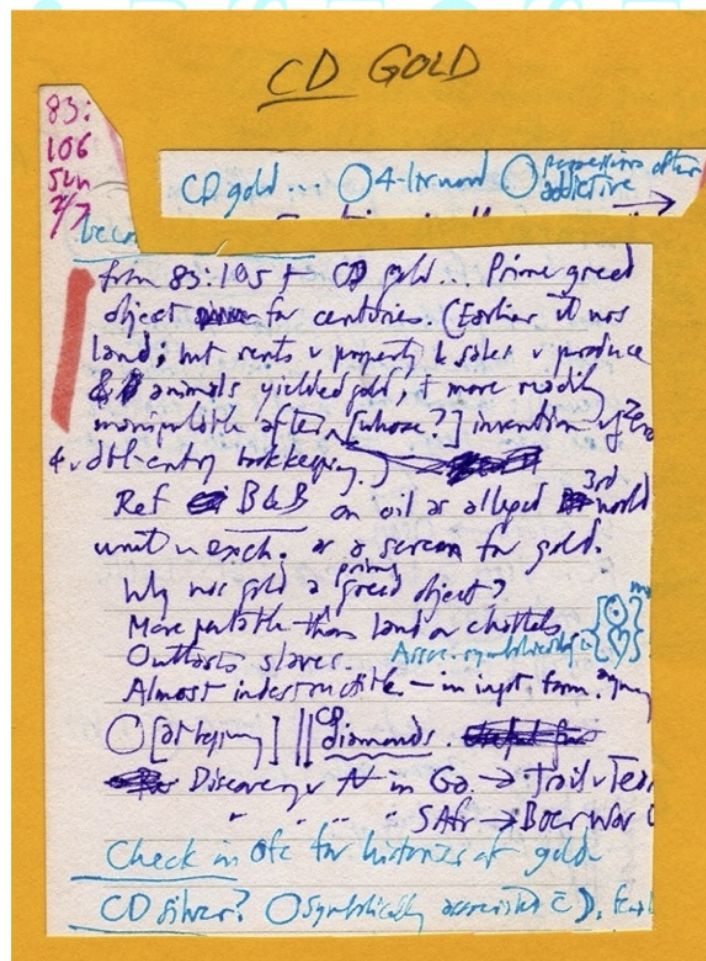 CD GOLD
83:
106
Sun
7/7
CD gold... 4-lornord often
addictive
→
becom
from 83:105 + CD gold... Prime greed
object for centuries. (Earlier it was
land; but rents v property & sales v produce
& animals yielded gold, + more readily
manipulable after [whose?] invention v zero
& v dbl-entry bookkeeping.)
Ref B&B on oil as alleged 3rd world
unit v exch. as a screen for gold.
Why was gold a primy greed object?
More portable than land or chattels
Outlasts slaves. Assoc. symbolically
Almost indestructible — in ingot form.
[at beginning] || CP diamonds.
Discovery v in Ga. → Trail v Tear
" " " " SAfr → Boer War
Check in Ofc for histories of gold
CD silver? Symbolically associated c̄ ☽,